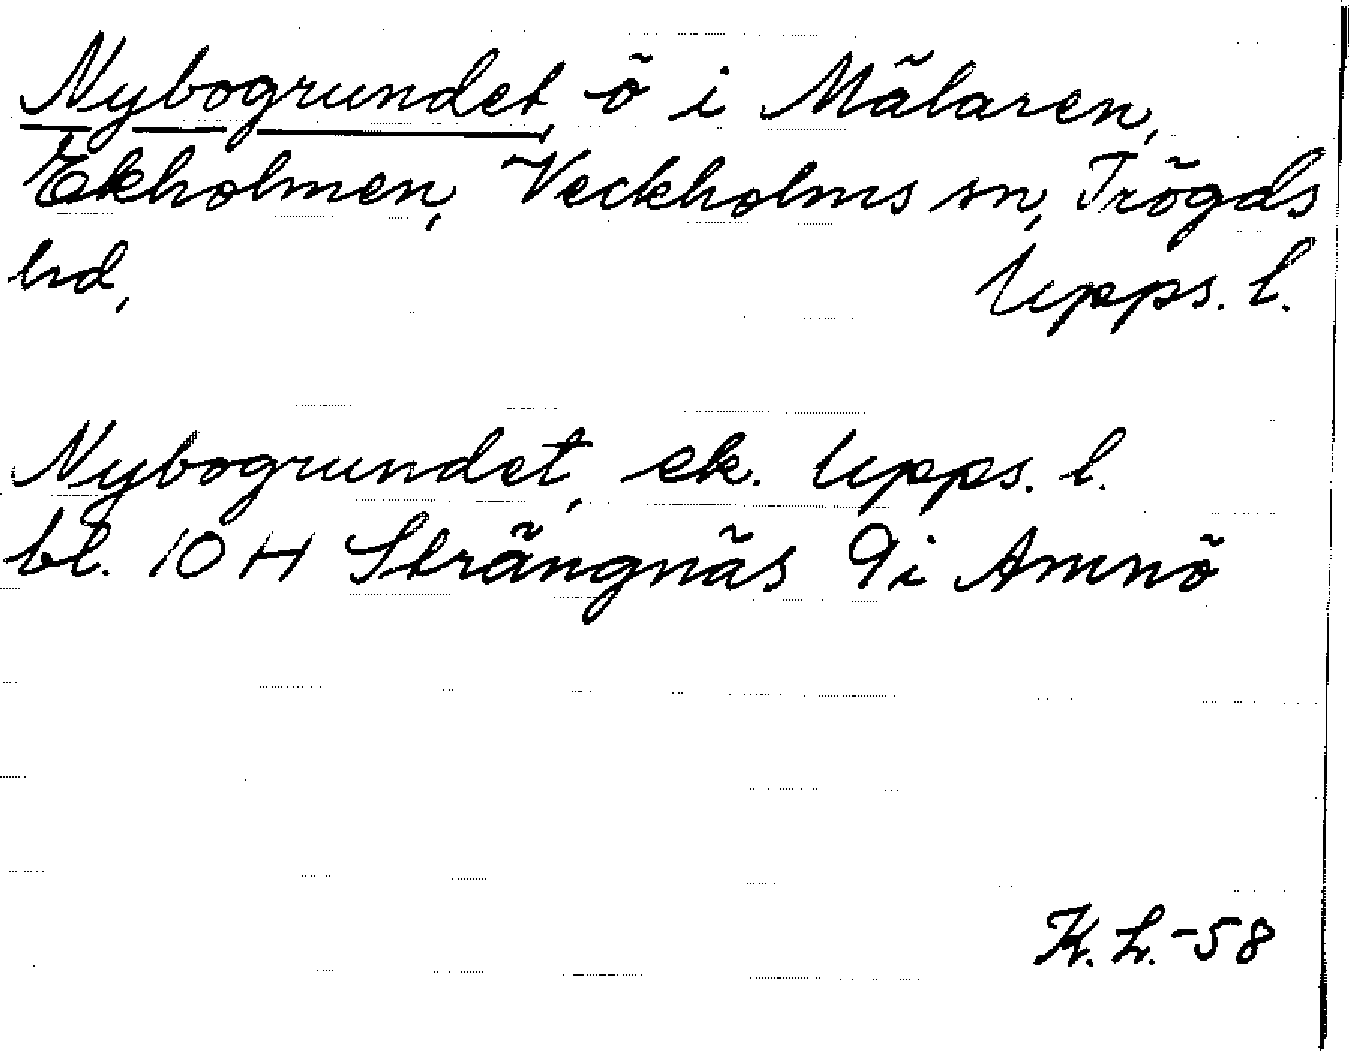 Nybogrundet, ö i Mälaren,
Ekholmen, Veckholms sn, Trögds
hd, Upps. l.
Nybogrundet, ek. Upps. l.
bl. 10 H Strängnäs 9i Arnnö
K. L. -58